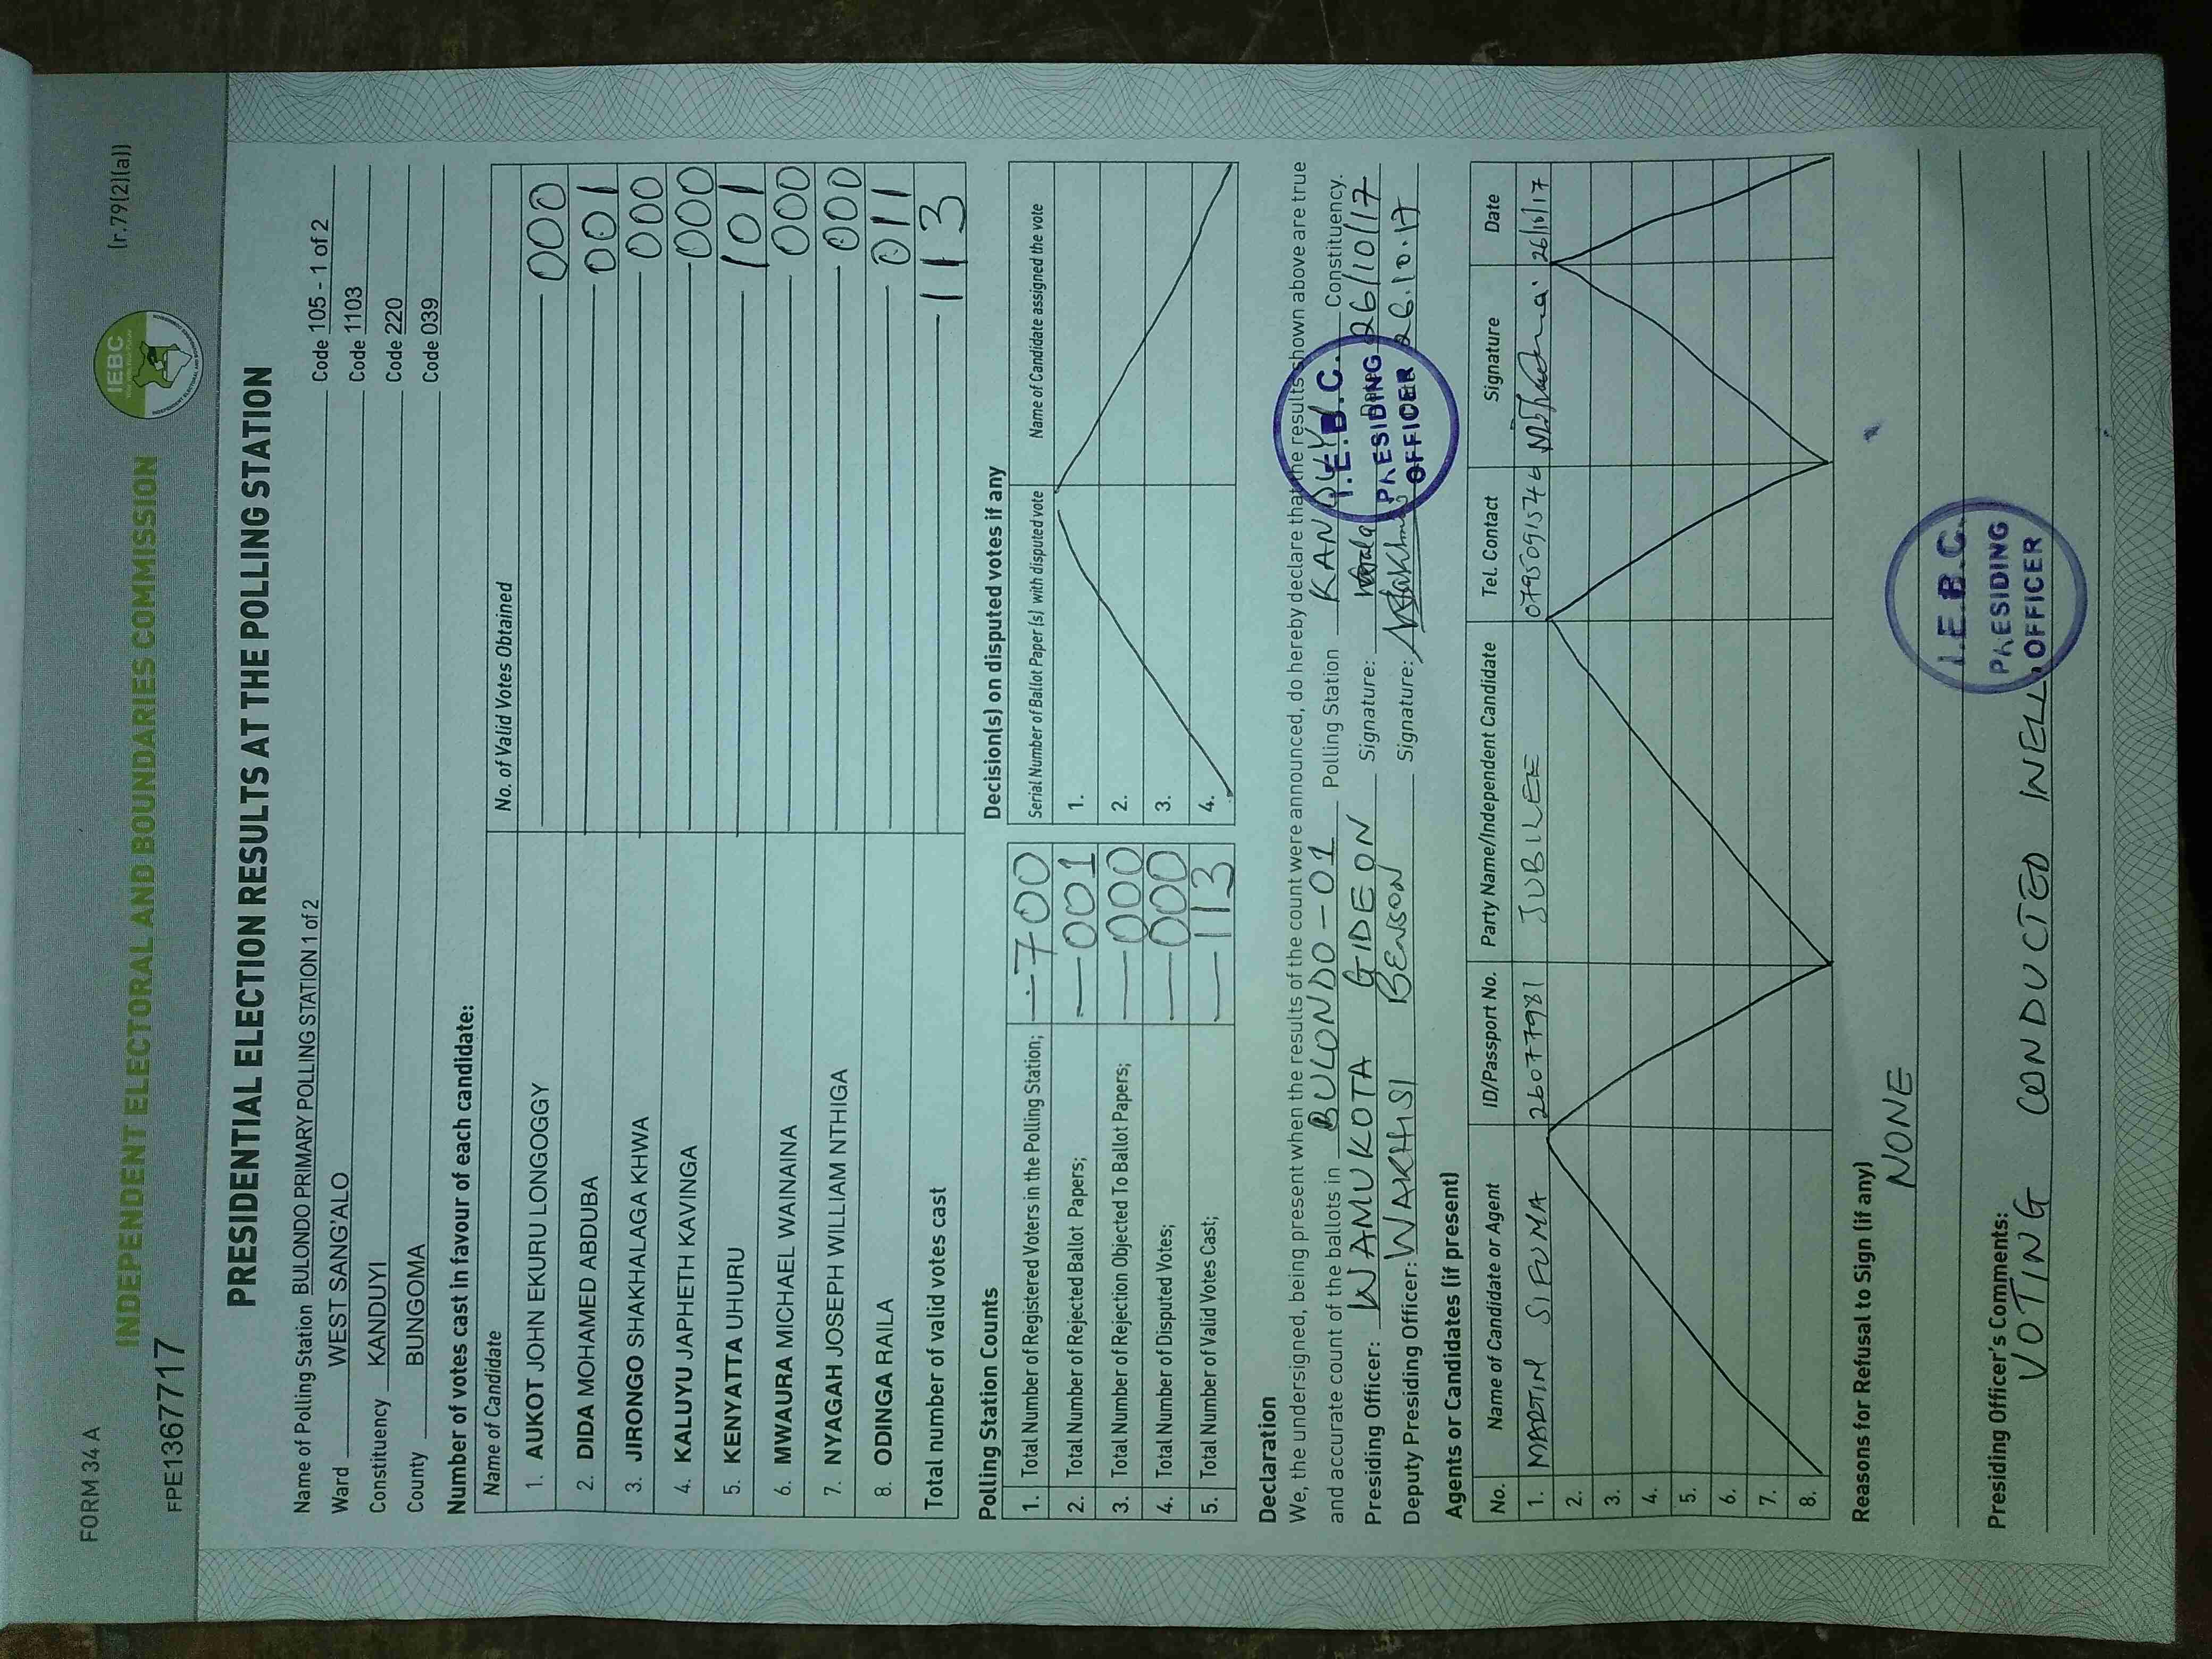 FORM 34 A
(r.79(2)(a))
IEBC
INDEPENDENT ELECTORAL AND BOUNDARIES COMMISSION
FPE1367717
PRESIDENTIAL ELECTION RESULTS AT THE POLLING STATION
Name of Polling Station BULONDO PRIMARY POLLING STATION 1 of 2 Code 105 - 1 of 2
Ward WEST SANG'ALO Code 1103
Constituency KANDUYI Code 220
County BUNGOMA Code 039
Number of votes cast in favour of each candidate:
Name of Candidate No. of Valid Votes Obtained
1. AUKOT JOHN EKURU LONGOGGY 000
2. DIDA MOHAMED ABDUBA 001
3. JIRONGO SHAKHALAGA KHWA 000
4. KALUYU JAPHETH KAVINGA 000
5. KENYATTA UHURU 101
6. MWAURA MICHAEL WAINAINA 000
7. NYAGAH JOSEPH WILLIAM NTHIGA 000
8. ODINGA RAILA 011
Total number of valid votes cast 113
Polling Station Counts
1. Total Number of Registered Voters in the Polling Station; 700
2. Total Number of Rejected Ballot Papers; 001
3. Total Number of Rejection Objected To Ballot Papers; 000
4. Total Number of Disputed Votes; 000
5. Total Number of Valid Votes Cast; 113
Decision(s) on disputed votes if any
Serial Number of Ballot Paper (s) with disputed vote Name of Candidate assigned the vote
1.
2.
3.
4.
Declaration
We, the undersigned, being present when the results of the count were announced, do hereby declare that the results shown above are true
and accurate count of the ballots in BULONDO-01 Polling Station KANDUYI Constituency.
Presiding Officer: WAMUKOTA GIDEON Signature: Date: 26/10/17
Deputy Presiding Officer: WAKHISI BENSON Signature: 26.10.17
I.E.B.C.
PRESIDING
OFFICER
Agents or Candidates (if present)
No. Name of Candidate or Agent ID/Passport No. Party Name/Independent Candidate Tel. Contact Signature Date
1. MARTIN SIFUMA 26077981 JUBILEE 0795091546 26/10/17
2.
3.
4.
5.
6.
7.
8.
Reasons for Refusal to Sign (if any)
NONE
Presiding Officer's Comments:
VOTING CONDUCTED WELL.
I.E.B.C.
PRESIDING
OFFICER